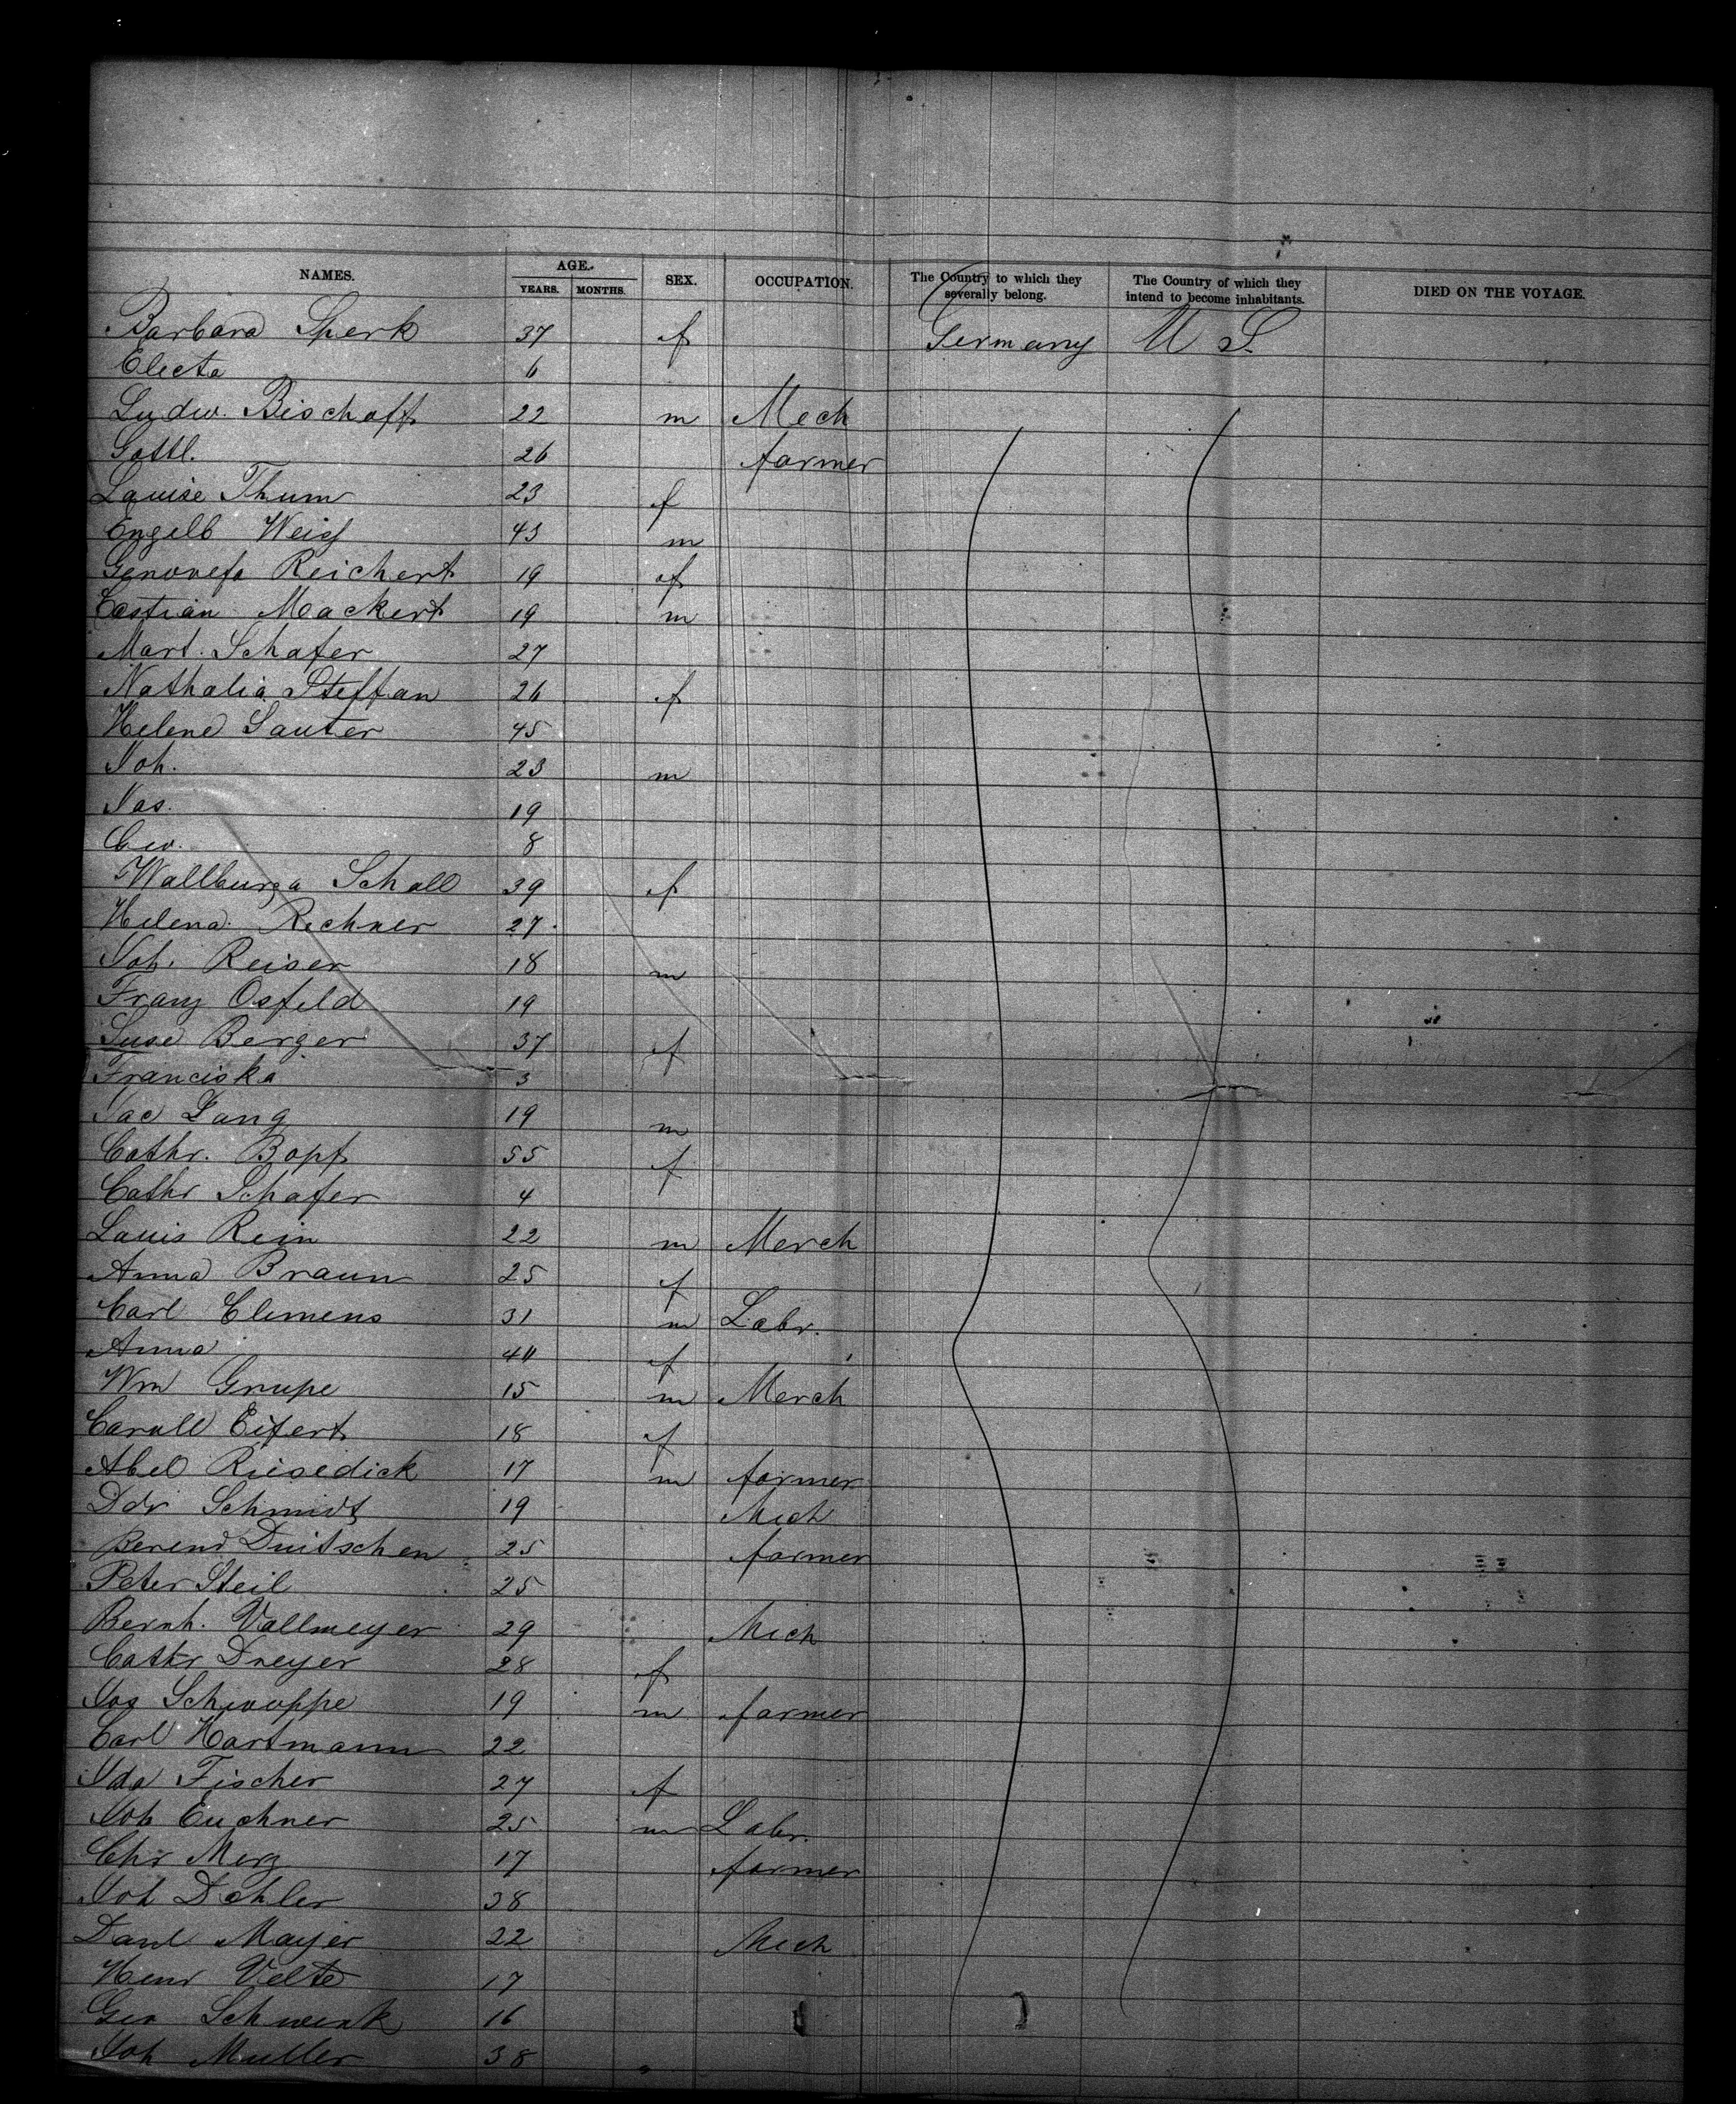 NAMES. AGE. YEARS. MONTHS. SEX. OCCUPATION. The Country to which they severally belong. The Country of which they intend to become inhabitants. DIED ON THE VOYAGE.
Barbara Sperk 37 f Germany U S
Electa 6
Ludw. Bischoff 22 m Mech
Gottl. 26 farmer
Louise Thum 23 f
Engelb Weiss 43 m
Genovefa Reichert 19 f
Mackert 19 m
Mart. Schafer 27
Nathalia Steffan 26 f
Helene Sauter 45
Joh. 23 m
Jas. 19
Geo. 8
Wallburga Scholl 39 f
Helena Rechner 27
Joh. Reiser 18 m
Franz Osfeld 19
Suse Berger 37 f
Franciska 3
Jac Lang 19 m
Cathr. Bopf 55 f
Cathr Schafer 4
Louis Rein 22 m Merch
Anna Braun 25 f
Carl Clemens 31 m Labr.
Anna 40 f
Wm Grupe 15 m Merch
Eifert 18 f
Abel Riesedick 17 m farmer
Schmidt 19 Mech
Berend Duitschen 25 farmer
Peter Steil 25
Bernh. Vollmeyer 29 Mech
Cathr Dreyer 28 f
Jos Schwoppe 19 m farmer
Carl Hartmann 22
Ida Fischer 27 f
Joh Euchner 25 m Labr.
Chr Merz 17 farmer
Joh Dohler 38
Danl Mayer 22 Mech
Henr Velte 17
Geo Schwenk 16
Joh Muller 38